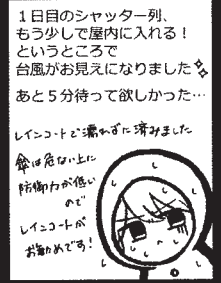 １日目のシャッター列、
もう少しで屋内に入れる！
というところで
台風がお見えになりました
あと５分待って欲しかった…
レインコートで濡れずに済みました
傘は危ない上に
防御力が低い
ので
レインコートが
お勧めです！